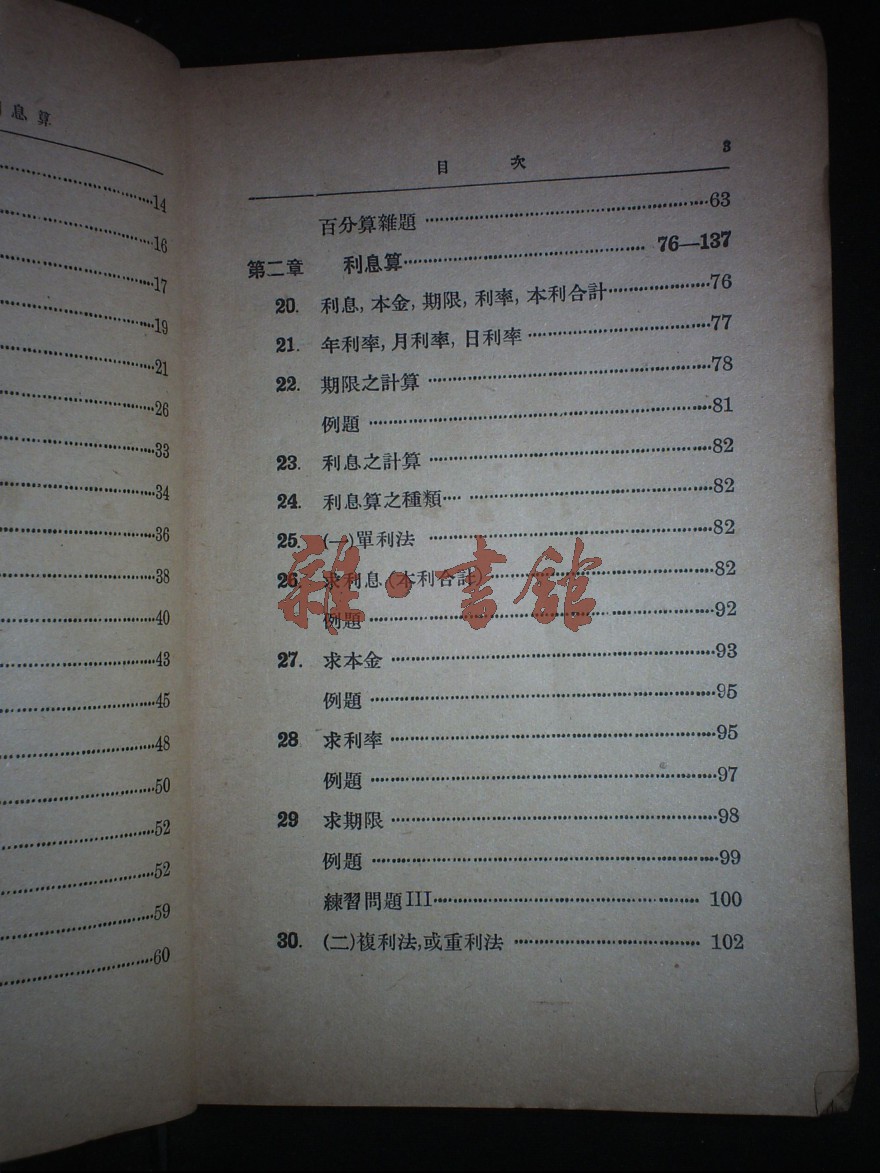 息算
14
16
17
19
21
26
33
34
36
38
40
43
45
48
50
52
52
59
60
目 次 3
百分算雜題 63
第二章 利息算 76—137
20. 利息, 本金, 期限, 利率, 本利合計 76
21. 年利率, 月利率, 日利率 77
22. 期限之計算 78
例題 81
23. 利息之計算 82
24. 利息算之種類 82
25. (一)單利法 82
26. 求利息(本利合計) 82
例題 92
27. 求本金 93
例題 95
28 求利率 95
例題 97
29 求期限 98
例題 99
練習問題III 100
30. (二)複利法,或重利法 102
雜·書館